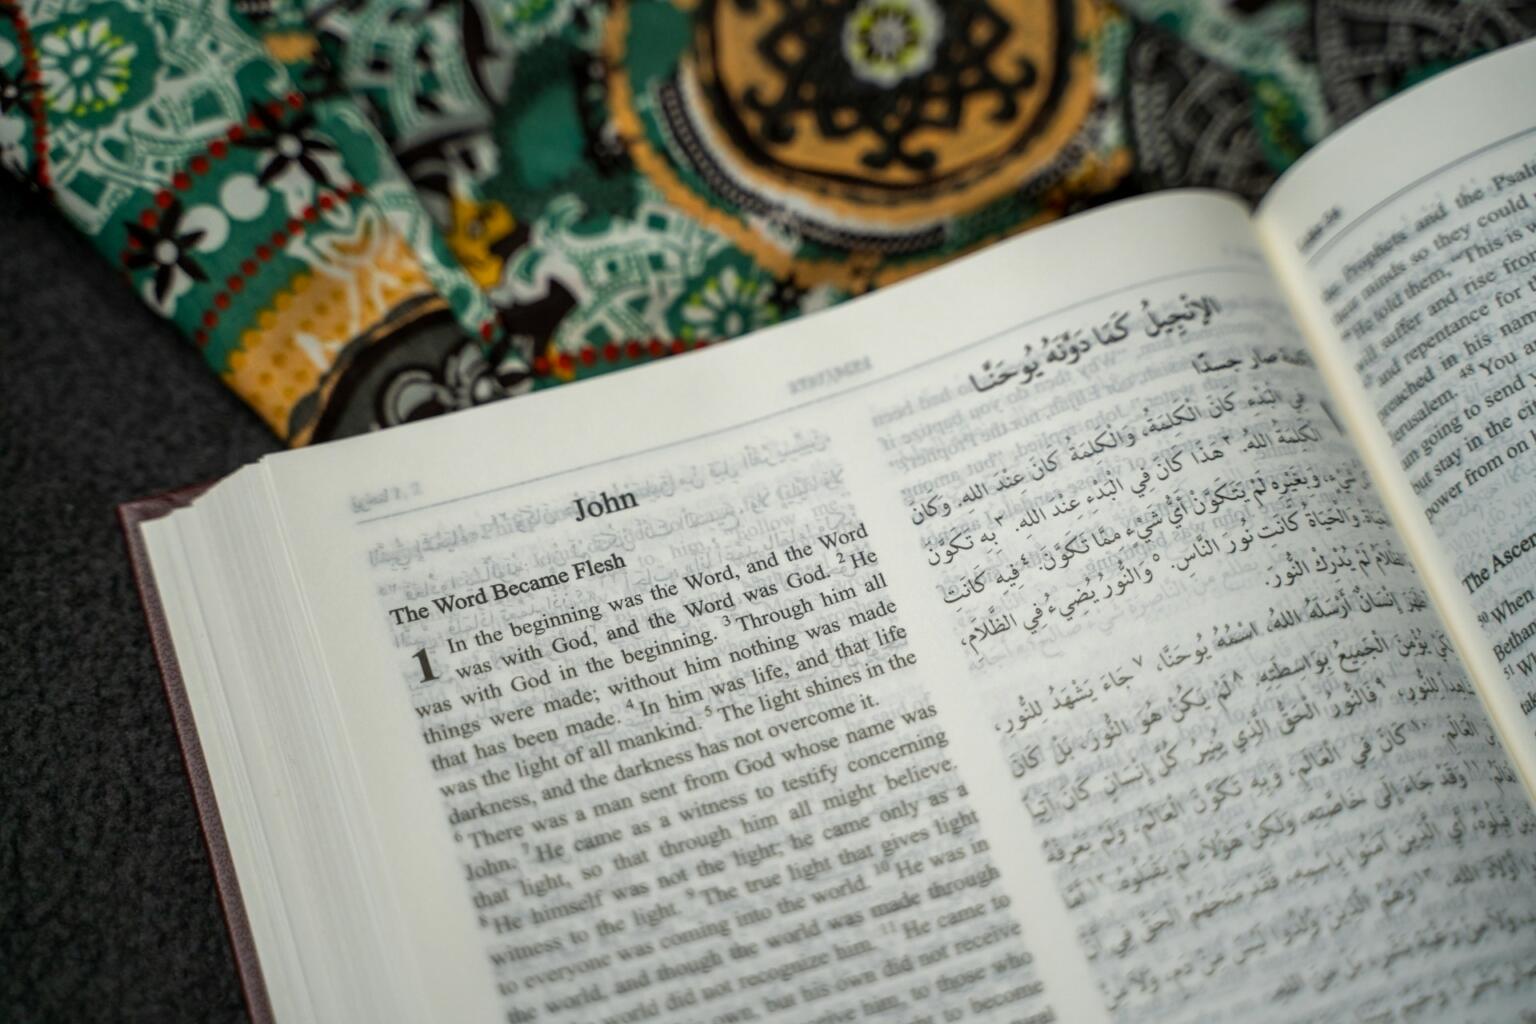 John
The Word Became Flesh
1 In the beginning was the Word, and the Word
was with God, and the Word was God. 2 He
was with God in the beginning. 3 Through him all
things were made; without him nothing was made
that has been made. 4 In him was life, and that life
was the light of all mankind. 5 The light shines in the
darkness, and the darkness has not overcome it.
6 There was a man sent from God whose name was
John. 7 He came as a witness to testify concerning
that light, so that through him all might believe.
8 He himself was not the light; he came only as a
witness to the light. 9 The true light that gives light
to everyone was coming into the world. 10 He was in
the world, and though the world was made through
world did not recognize him. 11 He came to
own, but his own did not receive
him, to those who
to become
الإنجيل كَمَا دَوَّنَهُ يُوحَنَّا
صار جسدًا
فِي الْبَدْءِ كَانَ الْكَلِمَةُ، وَالْكَلِمَةُ كَانَ عِنْدَ اللهِ. وَكَانَ
الْكَلِمَةُ اللهَ. ٢ هَذَا كَانَ فِي الْبَدْءِ عِنْدَ اللهِ. ٣ بِهِ تَكَوَّنَ
وَبِغَيْرِهِ لَمْ يَتَكَوَّنْ أَيُّ شَيْءٍ مِمَّا تَكَوَّنَ. ٤ فِيهِ كَانَتِ
وَالْحَيَاةُ كَانَتْ نُورَ النَّاسِ. ٥ وَالنُّورُ يُضِيءُ فِي الظَّلَامِ،
لَمْ يُدْرِكِ النُّورَ.
إِنْسَانٌ أَرْسَلَهُ اللهُ، اسْمُهُ يُوحَنَّا، ٧ جَاءَ يَشْهَدُ لِلنُّورِ،
يُؤْمِنَ الْجَمِيعُ بِوَاسِطَتِهِ. ٨ لَمْ يَكُنْ هُوَ النُّورَ، بَلْ كَانَ
لِلنُّورِ. ٩ فَالنُّورُ الْحَقُّ الَّذِي يُنِيرُ كُلَّ إِنْسَانٍ كَانَ آتِيًا
الْعَالَمِ. ١٠ كَانَ فِي الْعَالَمِ، وَبِهِ تَكَوَّنَ الْعَالَمُ، وَلَمْ يَعْرِفْهُ
١١ وَقَدْ جَاءَ إِلَى خَاصَّتِهِ، وَلَكِنَّ هَؤُلَاءِ لَمْ يَقْبَلُوهُ. ١٢ أَمَّا
أَيِ الَّذِينَ آمَنُوا بِاسْمِهِ، فَقَدْ مَنَحَهُمُ الْحَقَّ فِي أَنْ
اللهِ. ١٣ وَهُمُ الَّذِينَ وُلِدُوا لَيْسَ مِنْ دَمٍ، وَلَا مِنْ
Prophets and the
minds so they could
told them, "This is
will suffer and rise from
and repentance for
preached in his name
48 You
am going to send
but stay in the city
power from on
The
50 When